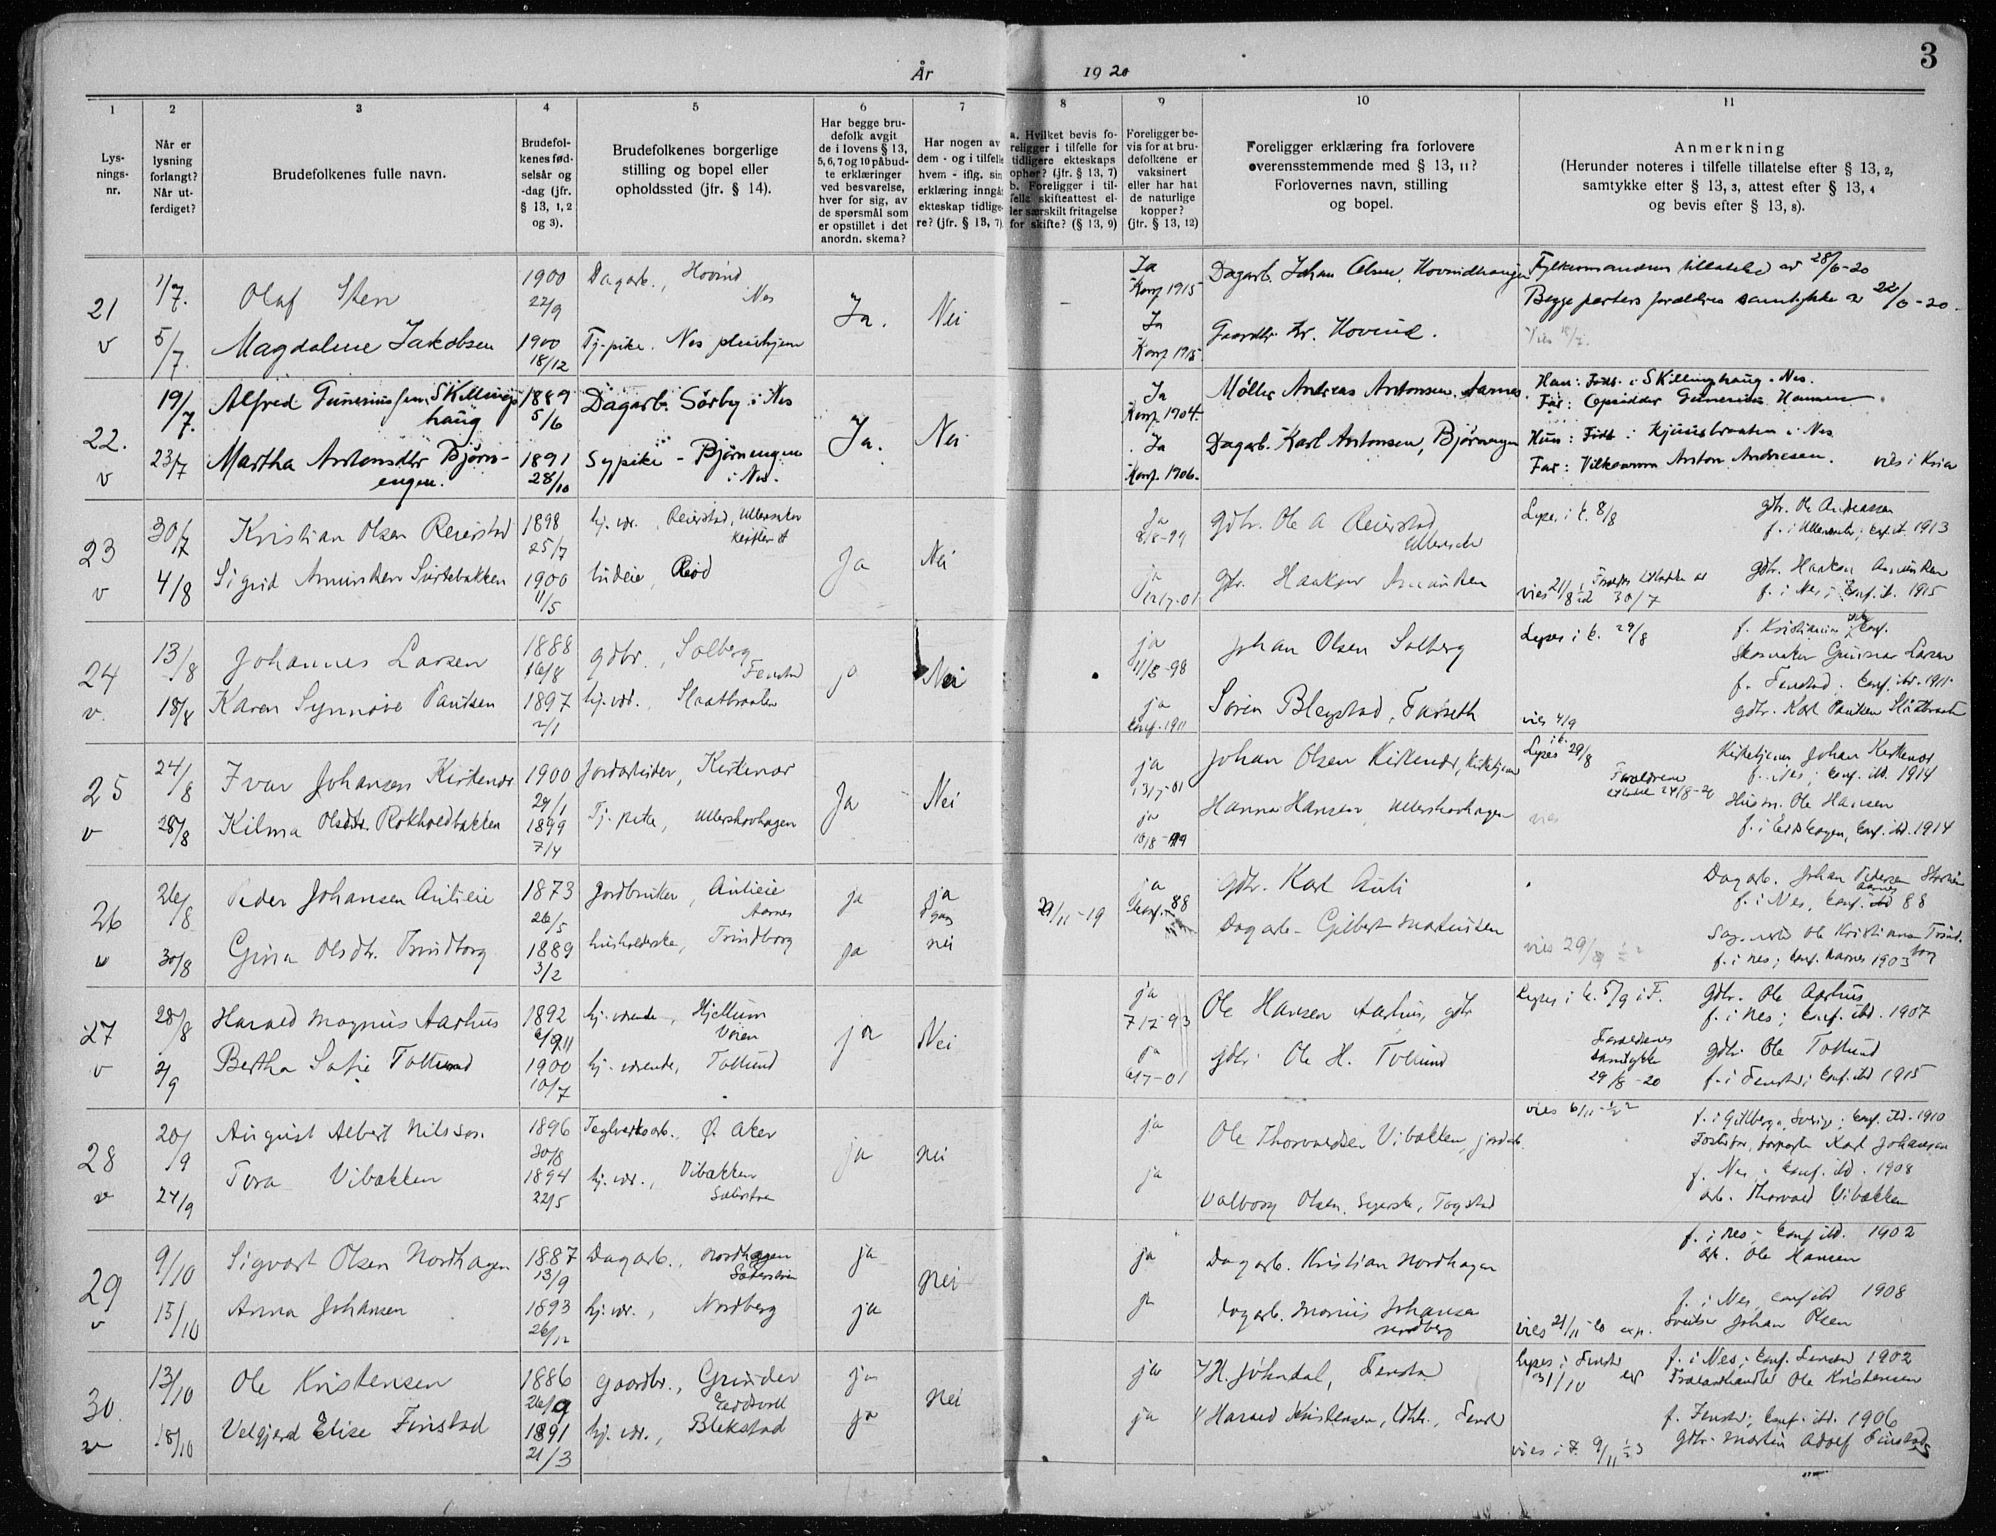 3
År 1920
1
2
3
4
5
6
7
8
9
10
11
Lys-
nings-
nr.
Når er
lysning
forlangt?
Når ut-
ferdiget?
Brudefolkenes fulle navn.
Brudefol-
kenes fød-
selsår og
-dag (jfr.
§ 13, 1, 2
og 3).
Brudefolkenes borgerlige
stilling og bopel eller
opholdssted (jfr. § 14).
Har begge bru-
defolk avgit
de i lovens § 13,
5, 6, 7 og 10 påbud-
te erklæringer
ved besvarelse,
hver for sig, av
de spørsmål som
er opstillet i det
anordn. skema?
Har nogen av
dem - og i tilfelle
hvem - iflg. sin
erklæring inngåt
ekteskap tidlige-
re? (jfr. § 13, 7)
a. Hvilket bevis fo-
religger i tilfelle for
tidligere ekteskaps
ophør? (jfr. § 13, 7)
b. Foreligger i til-
felle skifteattest el-
ler særskilt fritagelse
for skifte? (§ 13, 9)
Foreligger be-
vis for at bru-
defolkene er
vaksinert
eller har hat
de naturlige
kopper?
(jfr. § 13, 12)
Foreligger erklæring fra forlovere
overensstemmende med § 13, 11?
Forlovernes navn, stilling
og bopel.
Anmerkning
(Herunder noteres i tilfelle tillatelse efter § 13, 2,
samtykke efter § 13, 3, attest efter § 13, 4
og bevis efter § 13, 8).
21
v
1/7.
5/7.
Olaf Sten
Magdalene Jakobsen
1900
22/9
1900
18/12
Dagarb., Hovind
Nes
Tj-pike. Nes pleiehjem
Ja.
Nei
Ja
Konf 1915
Ja
Konf 1915
Dagarb. Johan Olsen, Hovindhaugen
Gaardbr. Hovind.
tillatelse av 28/6-20
Begge parters forældres samtykke av 22/6-20.
22.
v
19/7.
23/7
Alfred Gunerius­sen Skillings
haug
Martha Antonsdtr Bjørn-
engen.
1889
5/6
1891
28/10
Dagarb. Sørby i Nes
Sypike - Bjørnengen
i Nes.
Ja.
Nei
Ja
Konf. 1904.
Ja
Konf. 1906.
Møller Andreas Antonsen, Aarnes.
Dagarb. Karl Antonsen, Bjørnengen
Han: Født i Skillinghaug. Nes.
Far: Opsidder Gunerius Hansen.
Hun: Født i i Nes
Far: Anton Andresen. vies i Kria
23
v
30/7
4/8
Kristian Olsen Reierstad
Sigrid Amundsen Surtebakken
1898
25/7
1900
11/5
hj. vær., Reierstad, Ullensaker
budeie, Rød
Ja
Nei
Ja
8/8-99
ja
12/7-01
gdbr. Ole A Reierstad
Ullensaker
gbr. Haakon Amundsen
Lyses i k. 8/8
vies 21/8 30/7
gbr. Ole Andreassen
f. i Ullensaker; conf. it. 1913
gdbr. Haakon Amundsen
f. i Nes; conf. it. 1915
24
v.
13/8
18/8
Johannes Larsen
Karen Synnøve Paulsen
1888
16/8
1897
2/1
gdbr., Solberg
Fenstad
hj. vær., Slaatbraaten
ja
Nei
ja
11/8-98
ja
conf. 1911
Johan Olsen Solberg
Søren Blegstad, Farseth
Lyses i k. 29/8
vies 4/9
f. Kristiania; conf.
Skomaker Gunnar Larsen
f. Fenstad. conf. ibd. 1911
gdbr. Karl Paulsen Slaatbraaten
25
v
24/8
28/8
Ivar Johansen Kirkenær
Kilma Olsdtr. Rokholdbakken
1900
29/1
1899
7/4
Jordarbeider, Kirkenær
Tj. pike, Ullershovhagen
Ja
Nei
ja
13/7-01
ja
10/8-99
Johan Olsen Kirkenær, Kirketjener
Hanna Hansen, Ullershovhagen
Lyses i k. 29/8
Forældrene
24/8-20
vies
Kirketjener Johan Kirkenær
f. Nes; conf. ibd. 1914
Husm. Ole Hansen
f. i Eidskogen, conf. ibd. 1914
26
v
26/8
30/8
Peder Johansen Aulieie
Gina Olsdtr. Trindborg
1873
26/5
1889
3/2
Jordbruker, Aulieie
Aarnes
husholderske, Trindborg
ja
ja
ja
1 gang
nei
29/11-19
ja
Conf. 88
gdbr. Karl Auli
Dagarb. Gilbert Mathisen
vies 29/
Dagarb. Johan Pedersen
Aarnes
f. i Nes, conf. ibd 88
Ole Kristiansen Trind-
borg
f. i Nes; conf. Aarnes 1903
27
v
28/8
2/9
Harald Magnus Aarhus
Bertha Sofie Tollund
1892
1900
10/7
hj. værende, Hjellum
Veien
hj. værende, Tollund
ja
Nei
ja
7/12-93
ja
6/7-01
Ole Hansen Aarhus, gbr
gdbr. Ole H. Tollund
Lyses i k. 5/9 i F.
Forældrenes
samtykke
29/8-20
gdbr. Ole Aarhus
f. i Nes; conf. ibd. 1907
gdbr. Ole Tollund
f. i Fenstad; conf. ibd 1915
28
v
20/9
24/9
August Albert Nilsson
Tora Vibakken
1896
30/8
1894
22/5
Teglverksarb., Ø. Aker
hj. vær., Vibakken
ja
nei
ja
ja
Ole Thorvaldsen Vibakken, jordarb.
Valborg Olsen, Syerske, Togstad
vies 6/11
f. i Gillberga, Sverige; conf. ibd. 1910
Karl Johansson
f. Nes. conf. ibd. 1908
arb. Thorvald Vibakken
29
v
9/10
15/10
Sigvart Olsen Nordhagen
Anna Johansen
1887
13/9
1893
26/12
Dagarb., Nordhagen
hj. vær., Nordberg
ja
ja
nei
ja
ja
Dagarb. Kristian Nordhagen
Dagarb. Marius Johansen
Nordberg
vies 21/11-20 exp.
f. i Nes; conf ibd. 1902
arb. Ole Hansen
f. i Nes, conf ibd 1908
Sveitser Johan Olsen
30.
v
13/10
18/10
Ole Kristensen
Velgjerd Elise Finstad
1886
26/9
1891
21/3
Gaardbr., Grinder
Eidsvold
hj. vær., Blekstad
ja
ja
nei
ja
ja
H. Jøhndal, Fenstad
Harald Kristensen, Fenstad
Lyses i Fenstad
31/10
vies i F. 9/11
f. i Nes; conf. Fenstad 1902
Trælasthandler Ole Kristensen
f. Fenstad; conf. ibd. 1906
gdbr. Martin Adolf Finstad